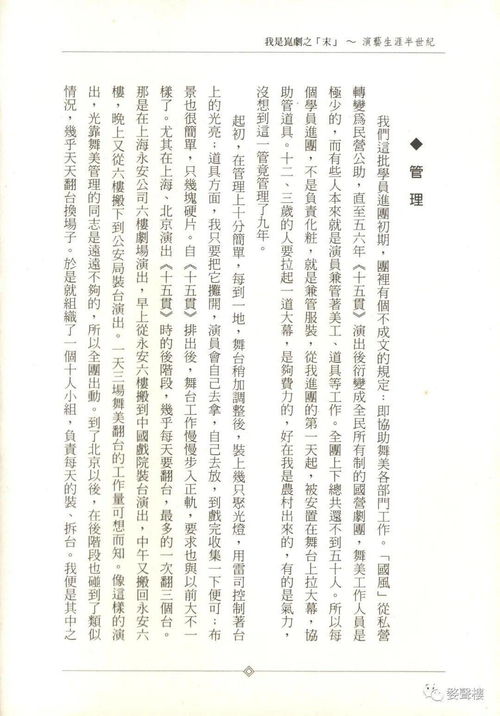 我是崑劇之「末」 ～ 演藝生涯半世紀
◆ 管理
我們這批學員進團初期，團裡有個不成文的規定：即協助舞美各部門工作。「國風」從私營
轉變為民營公助，直至五六年《十五貫》演出後衍變成全民所有制的國營劇團，舞美工作人員是
極少的，而有些人本來就是演員兼管著美工、道具等工作。全團上下總共還不到五十人。所以每
個學員進團，不是負責化粧，就是兼管服裝，從我進團的第一天起，被安置在舞台上拉大幕，協
助管道具。十二、三歲的人要拉起一道大幕，是夠費力的，好在我是農村出來的，有的是氣力，
沒想到這一管竟管理了九年。
起初，在管理上十分簡單，每到一地，舞台稍加調整後，裝上幾只聚光燈，用雷司控制著台
上的光亮；道具方面，我只要把它攤開，演員會自己去拿，自己去放，到戲完收集一下便可；布
景也很簡單，只幾塊硬片。自《十五貫》排出後，舞台工作慢慢步入正軌，要求也與以前大不一
樣了。尤其在上海、北京演出《十五貫》時的後階段，幾乎每天要翻台，最多的一次翻三個台。
那是在上海永安公司六樓劇場演出，早上從永安六樓搬到中國戲院裝台演出，中午又搬回永安六
樓，晚上又從六樓搬下到公安局裝台演出。一天三場舞美翻台的工作量可想而知。像這樣的演
出，光靠舞美管理的同志是遠遠不夠的，所以全團出動。到了北京以後，在後階段也碰到了類似
情況，幾乎天天翻台換場子。於是就組織了一個十人小組，負責每天的裝、拆台。我便是其中之
婺聲樓